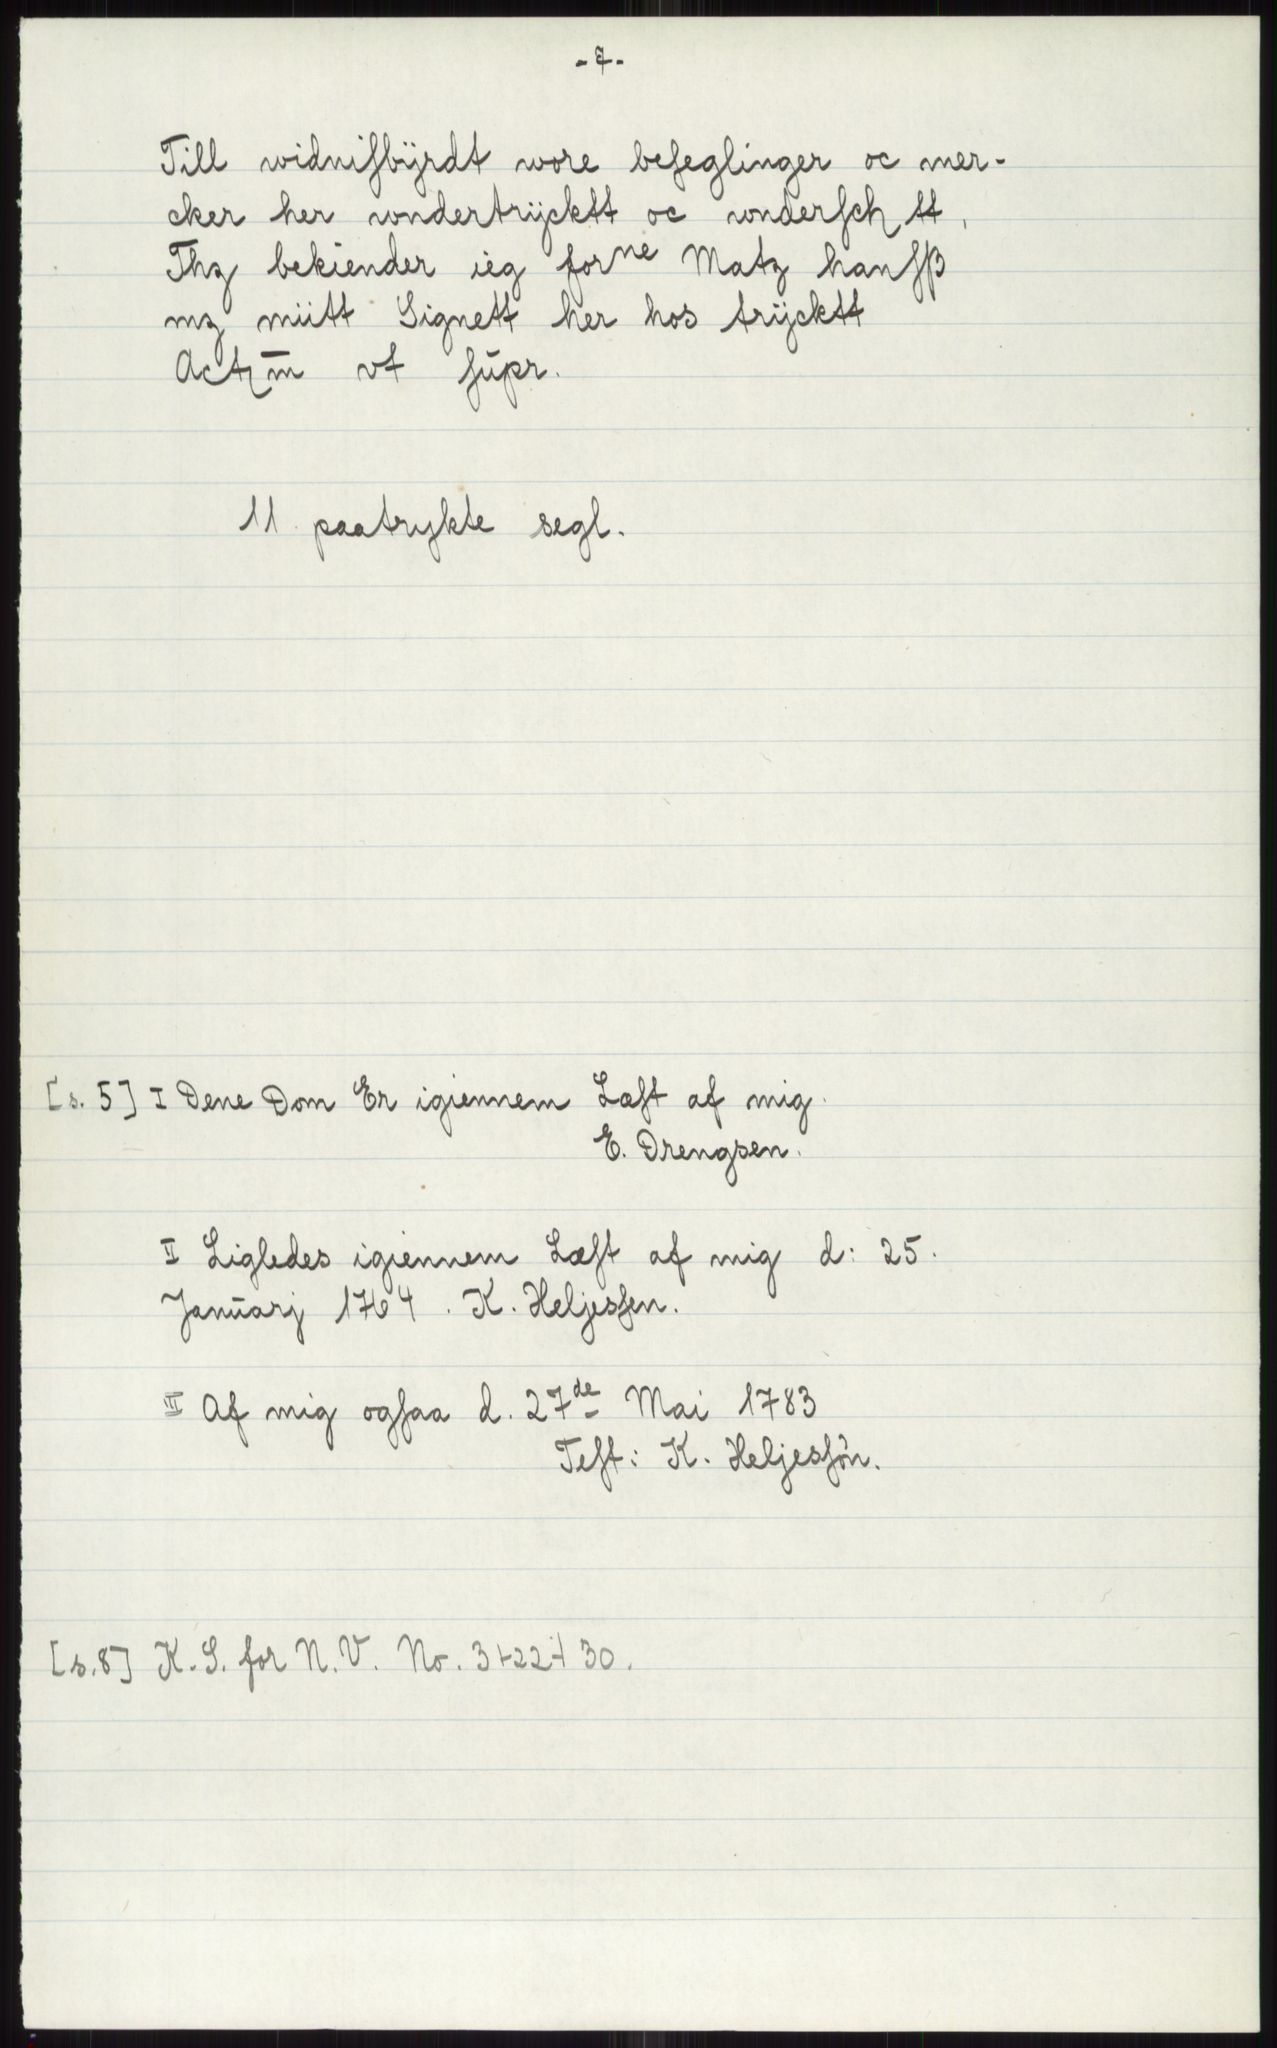 - 7 -
Till widnißbÿrdt wore beſeglinger oc mer-
cker her wndertrÿcktt oc wnderſch tt,
Thz bekiender ieg forne Matz hanſß
mz miitt Signett her hos trÿcktt
vt ſupr.
11 paatrykte segl.
[s. 5] I Dene Dom Er igiennem Læſt af mig.
E. Drengsen.
II Ligledes igiennem Læſt af mig d: 25.
Januarj 1764. K. Heljesſen.
III Af mig ogſaa d. 27de Mai 1783
Teſt: K. Heljesſön.
[s. 8] K. S. for N. V. No. 3+22+30.